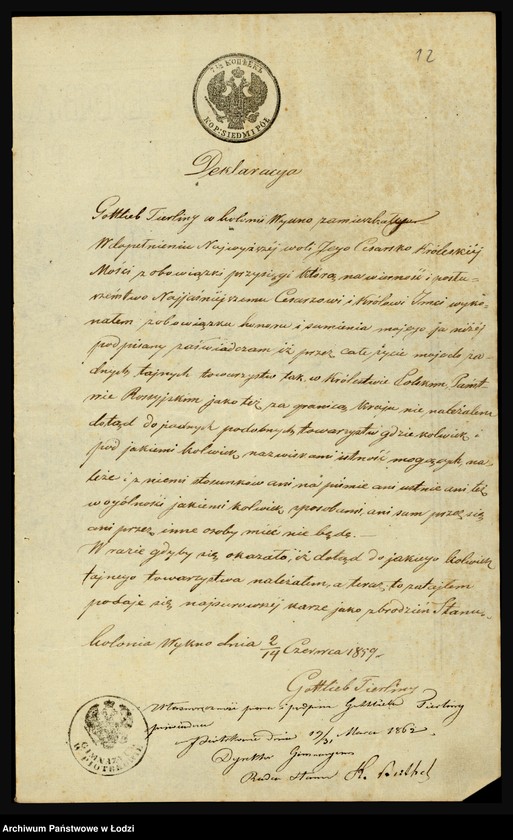 12
7½ КОПѢЕКЪ
KOP: SIEDM I PÓŁ
Deklaracya
Gottlieb Tierling w kolonii Wykno zamieszkały
W dopełnieniu Najwyższej woli Jego Cesarsko Królewskiej
Mości z obowiązku przysięgi którą na wierność i posłu-
szeństwo Najjaśniejszemu Cesarzowi i Królowi Jmci wyko-
nałem z obowiązku honoru i sumienia mojego ja niżej
podpisany zaświadczam iż przez całe życie moje do ża-
dnych tajnych towarzystw tak w Królestwie Polskim, Państ-
wie Rossyjskim jako też za granicą kraju nie należałem
dotąd do żadnych podobnych towarzystw gdziekolwiek i
pod jakiemi kolwiek nazwiskami istnieć mogących, na-
leże i z niemi stosunków ani na piśmie ani ustnie ani też
w ogólności jakiemi kolwiek sposobami, ani sam przez się
ani przez inne osoby mieć nie będę. —
W razie gdyby się okazało, iż dotąd do jakiego kolwiek
tajnego towarzystwa należałem, a teraz to zataiłem
podaję się najsurowszej karze jako zbrodzień Stanu.
Kolonia Wykno dnia 2/14 Czerwca 1859.
Gottlieb Tierling
własnoręczność pisma i podpisu Gottlieba Tierling
poświadcza
w Piotrkowie dnia 19/31 Marca 1862.
Dyrektor Gimnazyum
Radca Stanu
GIMNAZYUM
W PIOTRKOWIE
Archiwum Państwowe w Łodzi